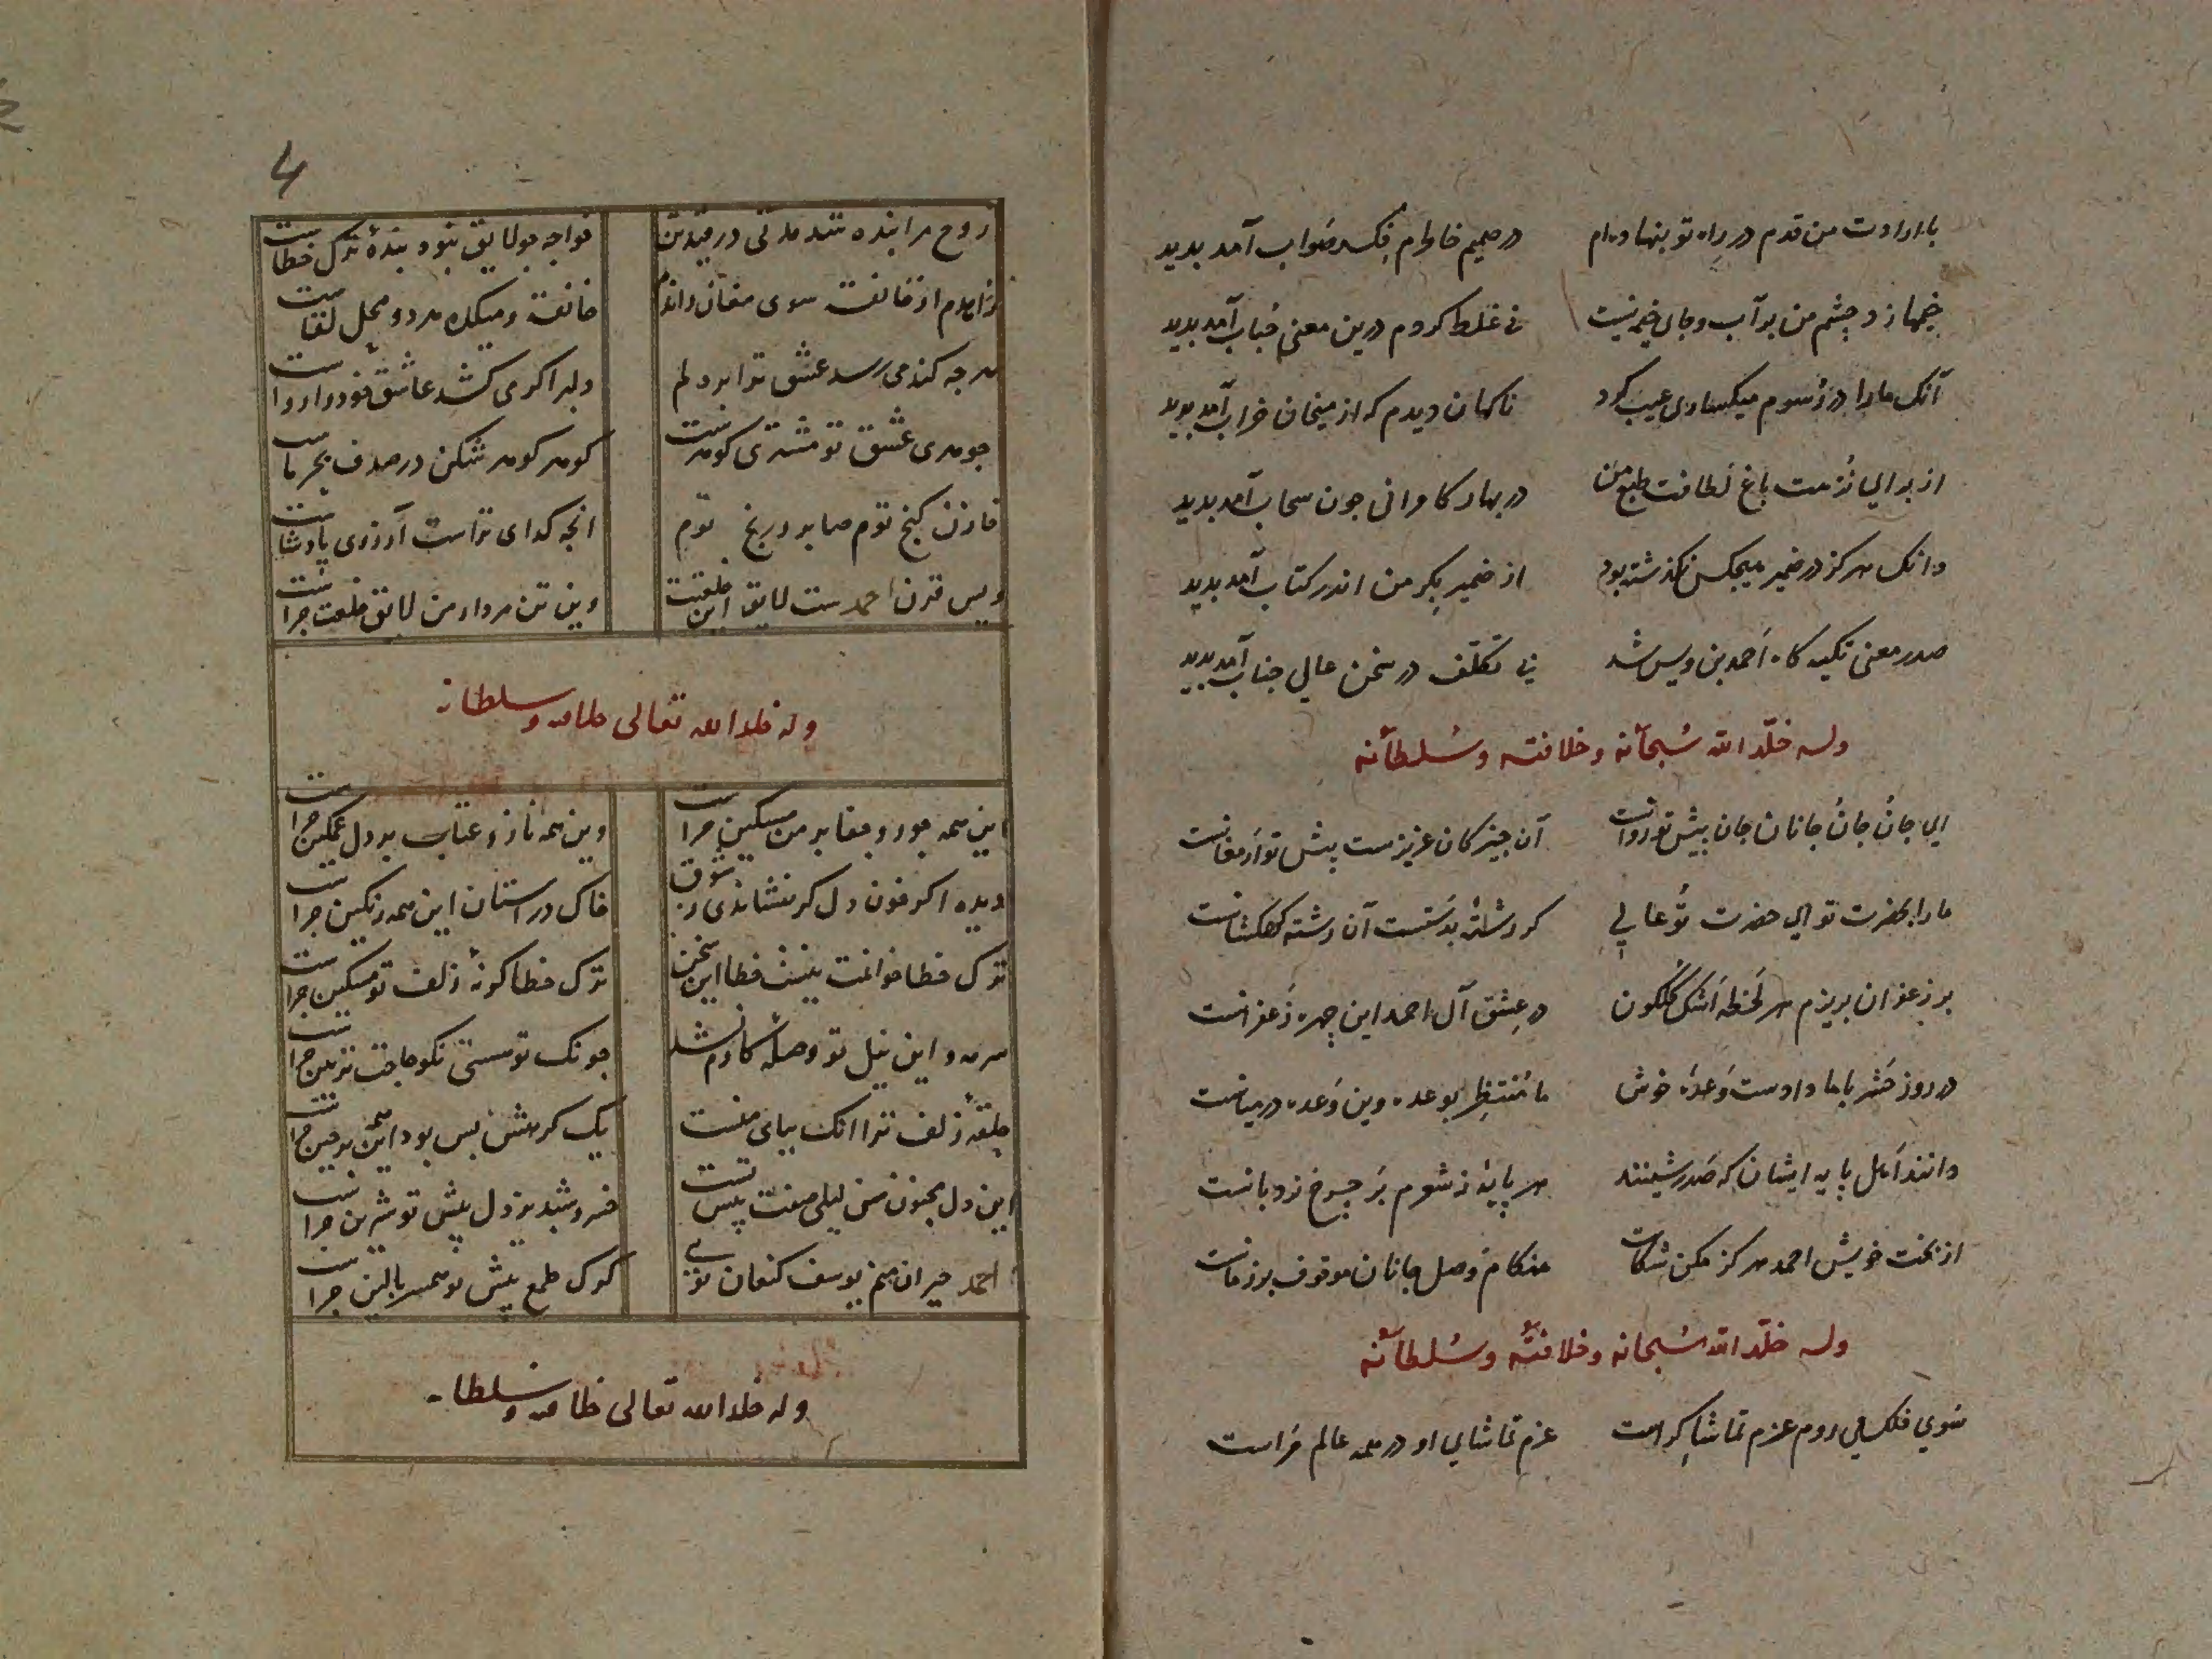 با ارادت من قدم در راه تو بنهاده‌ام در صمیم خاطرم فکر صواب آمد بدید
خیمها زد چشم من بر آب و جای خیمه نیست نی غلط کردم درین معنی حباب آمد بدید
آنک ما را در رسوم میکساری عیب کرد ناکهان دیدم که از میخانه خراب آمد بدید
از برای نزهت باغ لطافت طبع من در بهار کامرانی جون سحاب آمد بدید
وانک هرکز در ضمیر هیجکس نکذشته بود از ضمیر بکر من اندر کتاب آمد بدید
صدر معنی تکیه کاه احمد بن ویس شد بی تکلف در سخن عالی جناب آمد بدید
وله خلّد الله سُبحانه وخلافته وسُلطانه
ای جان جان جانان جان پیش تو روانست آن جیز کان عزیزست پیش تو ارمغانست
ما را بحضرت تو ای حضرت تو عالی کر رشتهٔ بدستست آن رشته کهکشانست
بر زعفران بریزم هر لحظه اشک کلکون در عشق آل احمد این چهره زعفرانست
در روز حشر با ما دادست وعدهٔ خوش ما منتظر بوعده وین وعده در میانست
دانند اهل پایه ایشان که صدر شینند هر پایهٔ ز شوم بر چرخ نردبانست
از بخت خویش احمد هرکز مکن شکایت هنکام وصل جانان موقوف بر زمانست
وله خلّد الله سُبحانه وخلافتهُ وسُلطانه
سوی فلک می روم عزم تماشا کراست عزم تماشای او در همه عالم مراست
4
روح مرا بنده شد مدتی در قید تن خواجه جو لایق نبود بندهٔ ترک خطاست
زاهدم از خانقه سوی مغان راندم خانقه و میکده هر دو محل لقاست
هرجه کند می رسد عشق ترا بر دلم دلبر اکر می کشد عاشق خود را رواست
جوهری عشق تو مشتری کوهرست کوهر کوهر شکن در صدف بحر ماست
خازن کنج توم صابر در رنج توم انجه کدای تراست آرزوی پادشاست
ویس قرن احمدست لایق این خلعتست وین تن مردار من لایق خلعت جراست
وله خلد الله تعالی خلافه وسلطانه
این همه جور و جفا بر من مسکین جراست وین همه ناز و عتاب بر دل غمکین جراست
دیده اکر خون دل کر نفشاندی ز شوق خاک در استان این همه رنکین جراست
ترک خطا خوانمت نیست خطا این سخن ترک خطا کونهٔ زلف تو مسکین جراست
سرمه و این نیل تو وصله کارم نشد جونک تو هستی نکو حاجت تزیین جراست
حلقهٔ زلف ترا انک بپای منست یک کرهش بس بود این همه بر جین جراست
این دل مجنون من لیلی صفت پیس تست خسرو شبدیز دل پیش تو شیرین جراست
احمد حیران منم یوسف کنعان تویی کرک طمع پیش تو همسر بالین جراست
وله خلد الله تعالی خلافه وسلطانه